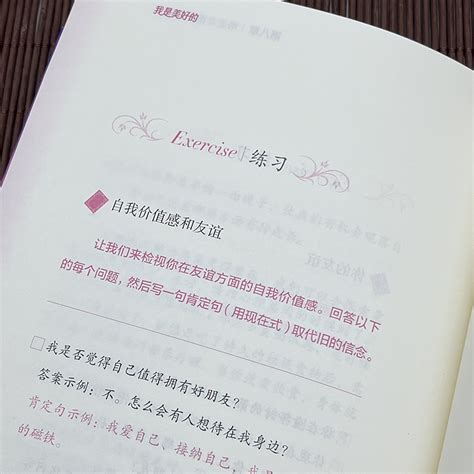 我是美好的
Exercise 练习
自我价值感和友谊
让我们来检视你在友谊方面的自我价值感。回答以下
的每个问题，然后写一句肯定句（用现在式）取代旧的信念。
□我是否觉得自己值得拥有好朋友？
答案示例：不。怎么会有人想待在我身边？
肯定句示例：我爱自己、接纳自己；我
的磁铁。